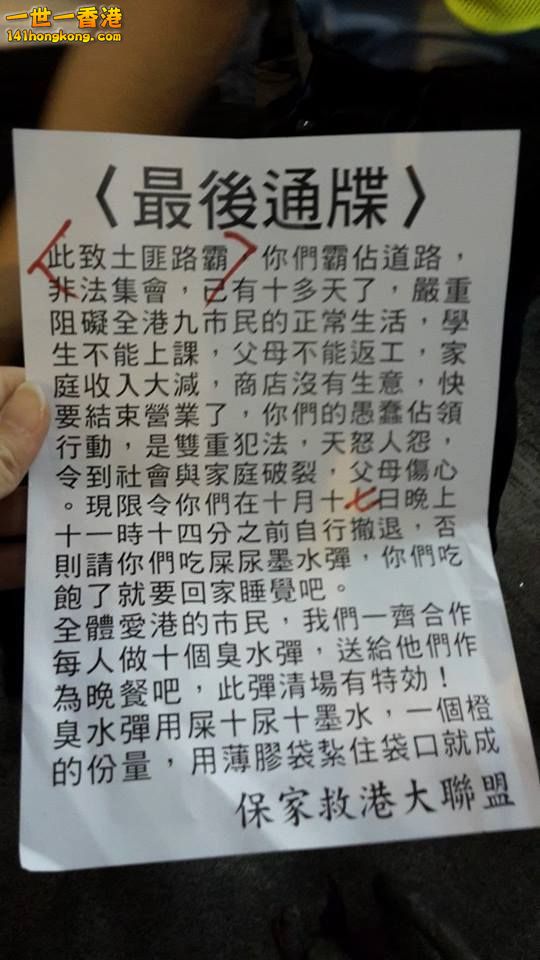 一世一香港
141hongkong.com
〈最後通牒〉
此致土匪路霸，你們霸佔道路，
非法集會，己有十多天了，嚴重
阻礙全港九市民的正常生活，學
生不能上課，父母不能返工，家
庭收入大減，商店沒有生意，快
要結束營業了，你們的愚蠢佔領
行動，是雙重犯法，天怒人怨，
令到社會與家庭破裂，父母傷心
。現限令你們在十月十七日晚上
十一時十四分之前自行撤退，否
則請你們吃屎尿墨水彈，你們吃
飽了就要回家睡覺吧。
全體愛港的市民，我們一齊合作
每人做十個臭水彈，送給他們作
為晚餐吧，此彈清場有特効！
臭水彈用屎十尿十墨水，一個橙
的份量，用薄膠袋紮住袋口就成
保家救港大聯盟